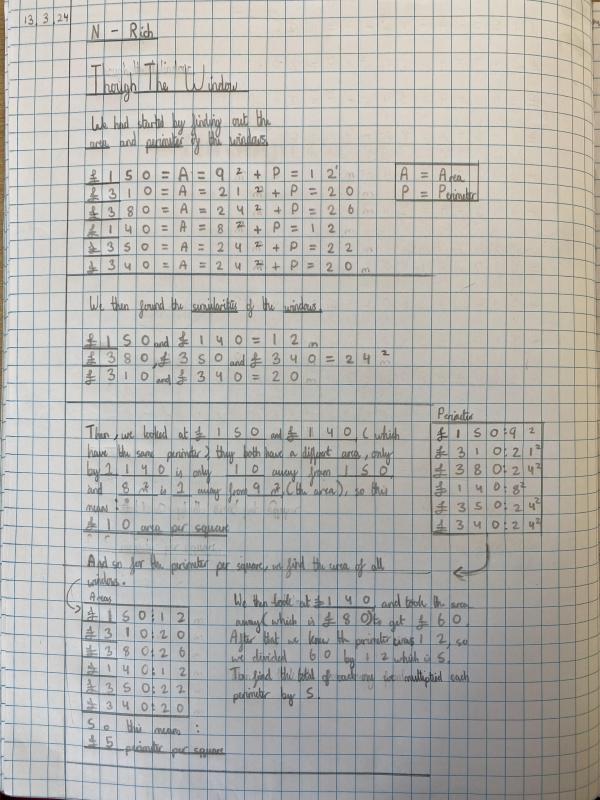 13.3.24
N - Rich
Though The Window
We had started by finding out the
area and perimeter of the windows.
£150 = A = 9² + P = 12
£310 = A = 21² + P = 20
£380 = A = 24² + P = 26
£140 = A = 8² + P = 12
£350 = A = 24² + P = 22
£340 = A = 24² + P = 20
A = Area
P = Perimeter
We then found the similarities of the windows.
£150 and £140 = 12 m
£380, £350 and £340 = 24²
£310 and £340 = 20
Then, we looked at £150 and £140, (which
have the same perimeter) they both have a diffrent area, only
by 1 140 is only 10 away from 150,
and 8 m² is 1 away from 9 m², (the area), so this
mean:
£10 area per square
Perimeter
£150:9²
£310:21²
£380:24²
£140:8²
£350:24²
£340:24²
And so for the perimeter per square, we find the area of all
windows.
Areas
£150:12
£310:20
£380:26
£140:12
£350:22
£340:20
So this means:
£5 perimeter per square
We then look at £140, and took the area
away (which is £80) to get £60.
After that we knew the perimeter was 12, so
we divided 60 by 12 which is 5.
To find the total of each one we multiplied each
perimeter by 5.